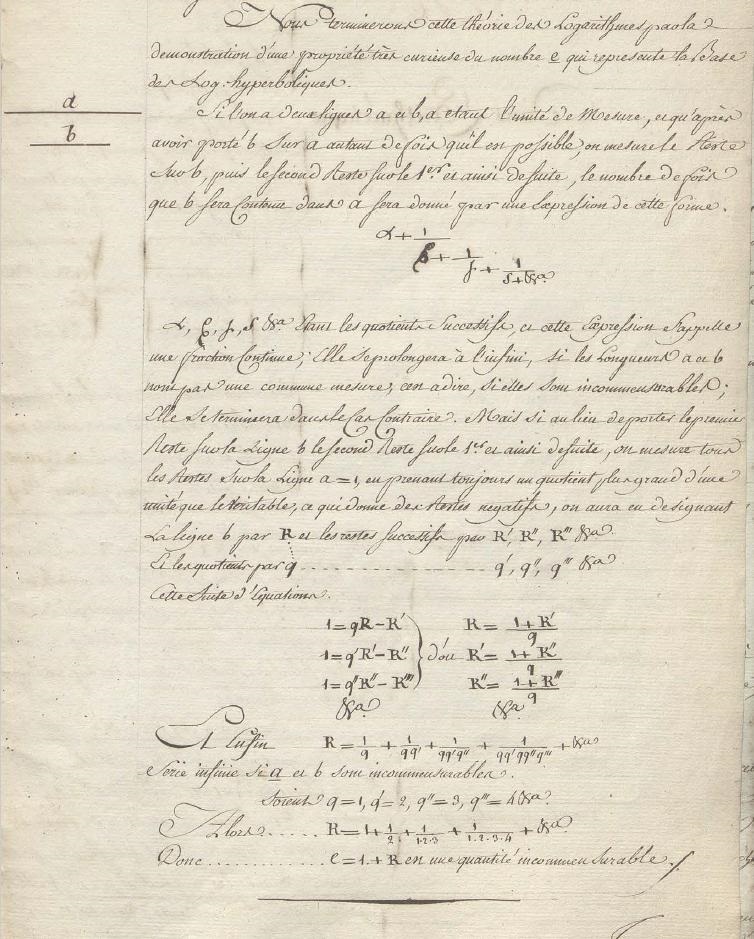 Nous terminerons cette théorie des Logarithmes par la
demonstration d'une propriété très curieuse du nombre e qui represente la Base
des Log. hyperboliques.
a
b
Si l'on a deux lignes a et b, a etant l'unité de Mesure, et qu'après
avoir porté b sur a autant de fois qu'il est possible, on mesure le Reste
sur b, puis le second Reste sur le 1er et ainsi de suite, le nombre de fois
que b sera Contenu dans a sera donné par une Expression de cette forme.
α + 1
β + 1
γ + 1
δ + &a
α, β, γ, δ &a Etant les quotients Successifs, et cette Expression s'appelle
une fraction Continue; Elle se prolongera à l'infini, si les Longueurs a et b
n'ont pas une commune mesure, c'est a dire, si elles sont incommensurables;
Elle se terminera dans le Cas Contraire. Mais si au lieu de porter le premier
Reste sur la Ligne b le second Reste sur le 1er et ainsi de suite, on mesure tous
les Restes sur la Ligne a = 1, en prenant toujours un quotient plus grand d'une
unité que le véritable, ce qui donne des Restes negatifs, on aura en designant
La ligne b par R et les restes Successifs par R', R'', R''' &a
Et les quotients par q ............ q', q'', q''' &a
Cette Suite d'Equations.
1 = qR − R' R = 1 + R' / q
1 = q'R' − R'' } d'où R' = 1 + R'' / q
1 = q''R'' − R''' R'' = 1 + R'' / q
&a &a
Et Enfin R = 1/q + 1/qq' + 1/qq'q'' + 1/qq'q''q''' + &a
Serie infinie si a et b sont incommensurables.
Soient q = 1, q' = 2, q'' = 3, q''' = 4 &a
Alors ...... R = 1 + 1/2 + 1/1·2·3 + 1/1·2·3·4 + &a
Donc .......... e = 1 + R est une quantité incommensurable.